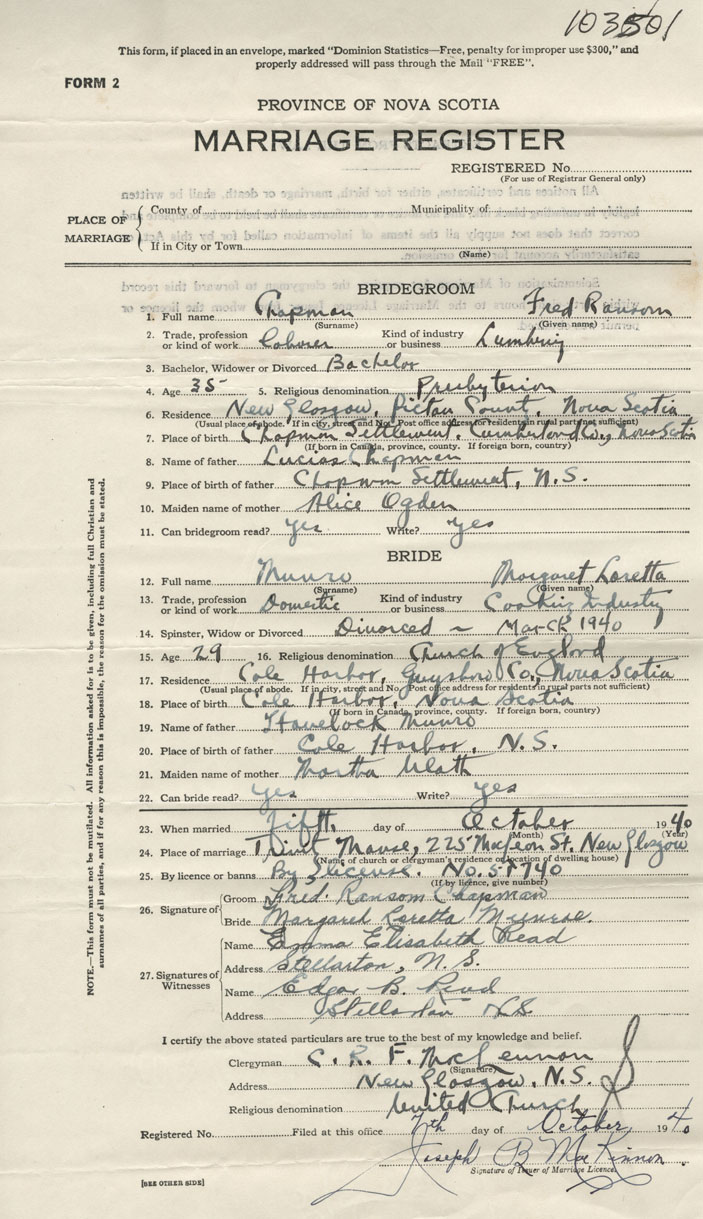 This form, if placed in an envelope, marked "Dominion Statistics—Free, penalty for improper use $300," and
properly addressed will pass through the Mail "FREE".
FORM 2
PROVINCE OF NOVA SCOTIA
MARRIAGE REGISTER
REGISTERED No.
(For use of Registrar General only)
PLACE OF MARRIAGE
County of Municipality of
If in City or Town
(Name)
BRIDEGROOM
1. Full name Chapman Fred Ransom
(Surname) (Given name)
2. Trade, profession or kind of work Laborer Kind of industry or business Lumbering
3. Bachelor, Widower or Divorced Bachelor
4. Age 35 5. Religious denomination Presbyterian
6. Residence New Glasgow, Pictou County, Nova Scotia
(Usual place of abode. If in city, street and No. Post office address for residents in rural parts not sufficient)
7. Place of birth Chapman Settlement, Cumberland Co., Nova Scotia
(If born in Canada, province, county. If foreign born, country)
8. Name of father Lucias Chapman
9. Place of birth of father Chapman Settlement, N.S.
10. Maiden name of mother Alice Ogden
11. Can bridegroom read? Yes Write? Yes
BRIDE
12. Full name Munro Margaret Loretta
(Surname) (Given name)
13. Trade, profession or kind of work Domestic Kind of industry or business Cooking Industry
14. Spinster, Widow or Divorced Divorced – March 1940
15. Age 29 16. Religious denomination Church of England
17. Residence Cole Harbor, Guysboro Co., Nova Scotia
(Usual place of abode. If in city, street and No. Post office address for residents in rural parts not sufficient)
18. Place of birth Cole Harbor, Nova Scotia
(If born in Canada, province, county. If foreign born, country)
19. Name of father Havelock Munro
20. Place of birth of father Cole Harbor, N.S.
21. Maiden name of mother Martha
22. Can bride read? Yes Write? Yes
23. When married Fifth day of October 1940
(Month) (Year)
24. Place of marriage Trinity Manse, 225 St. New Glasgow
(Name of church or clergyman's residence or location of dwelling house)
25. By licence or banns By license. No. 57740
(If by licence, give number)
26. Signature of
Groom Fred Ransom Chapman
Bride Margaret Loretta Munroe.
27. Signatures of Witnesses
Name Emma Elisabeth Read
Address Stellarton, N.S.
Name Edgar B. Read
Address Stellarton N.S.
I certify the above stated particulars are true to the best of my knowledge and belief.
Clergyman C. R. F. MacLennon
(Signature)
Address New Glasgow, N.S.
Religious denomination United Church
Registered No. Filed at this office 7th day of October 1940
Joseph B MacKinnon
Signature of Issuer of Marriage Licence
[SEE OTHER SIDE]
NOTE.—This form must not be mutilated. All information asked for is to be given, including full Christian and
surnames of all parties, and if for any reason this is impossible, the reason for the omission must be stated.